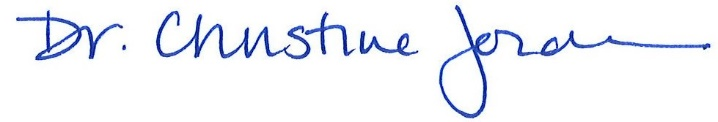 Dr. Christine Jordan